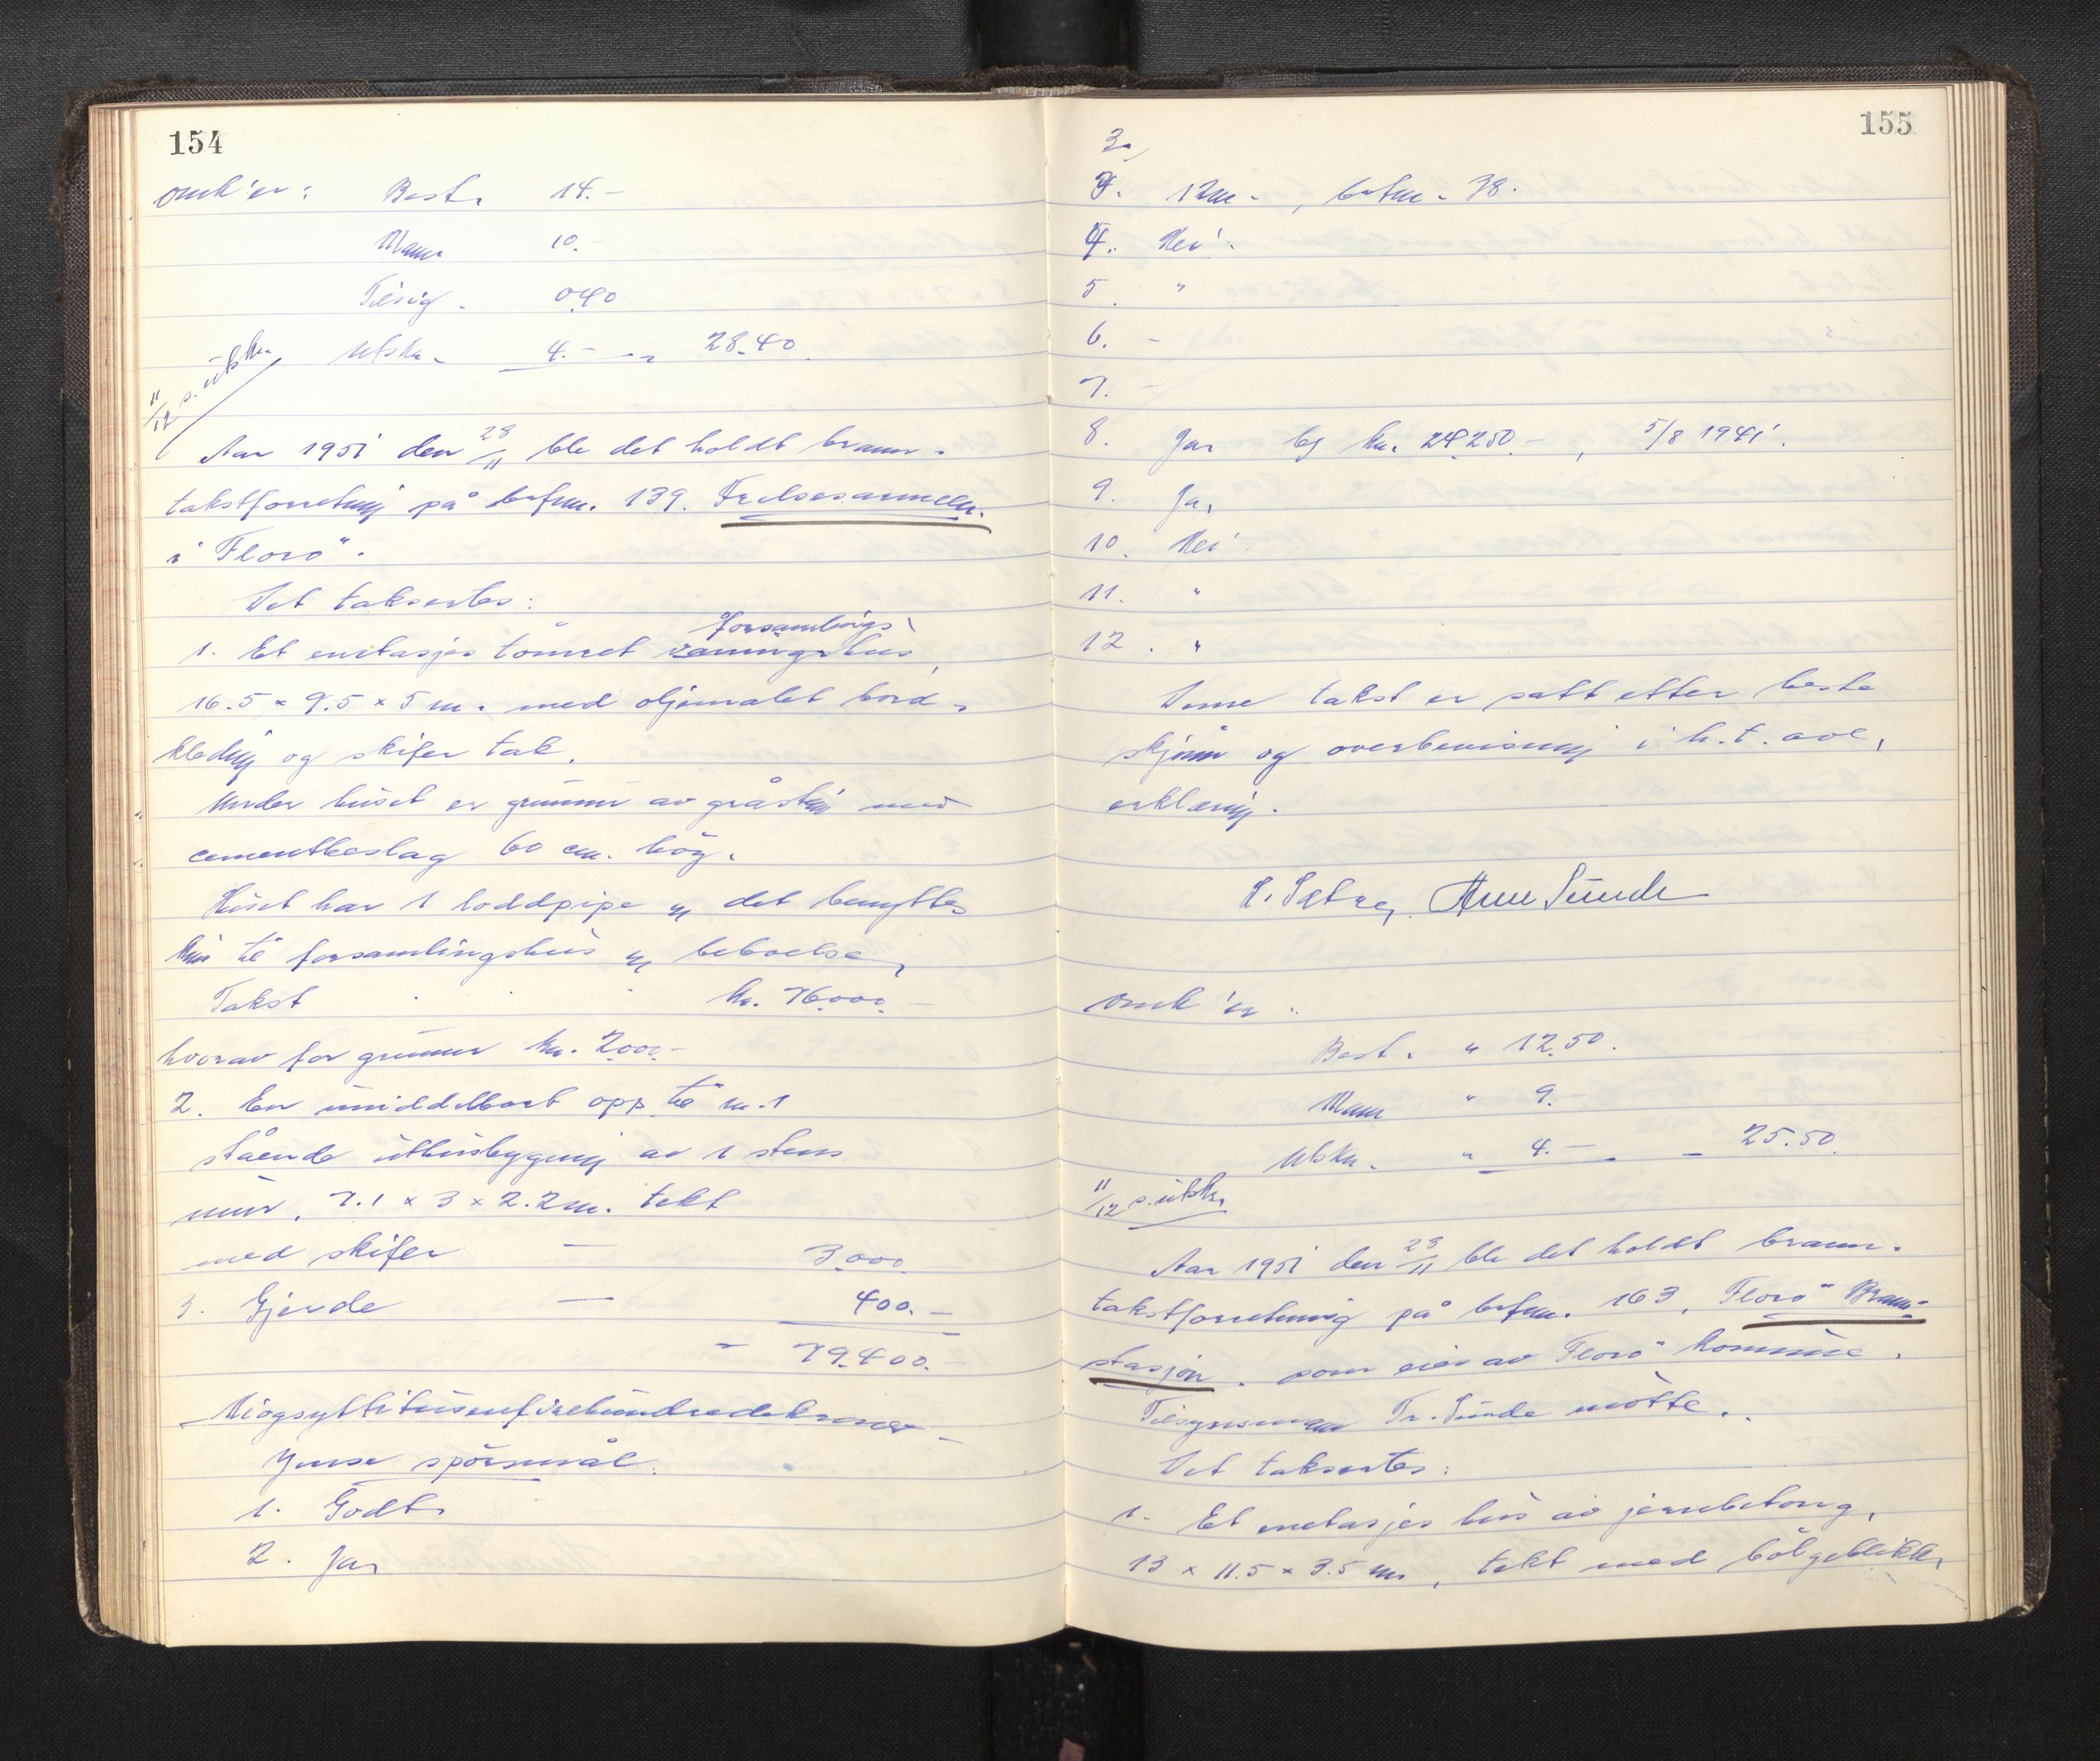 154
omk'er: Best. 14.-
Mann 10.-
Tilsig. 0.40
Utskr. 4.- - 28.40
11/12 s. utskr.
Aar 1951 den 28/11 ble det holdt brann-
takstforretning på brfnr. 139. Frelsesarmeen.
i Florö.
Det taksertes:
forsamlings
1. Et enetasjes tömret vaaningshus,
16.5 x 9.5 x 5 m. med oljemalet bord-
kledning og skifer tak.
Under huset er grunnmur av gråstein med
cementbeslag 60 cm. höy.
Huset har 1 loddpipe og det benyttes
kun til forsamlingshus og beboelse,
Takst kr. 76.000.-
hvorav for grunnmur kr. 2.000.-
2. En umiddelbart opp til nr. 1
stående uthusbygning av 1 stens
mur, 7.1 x 3 x 2.2 m. tekt
med skifer - 3.000.
3. Gjerde - 400.-
" 79.400.-
Niogsyttitusenfirehundredekroner-
Jmse spörsmål:
1. Godt.
2. Ja,
155
3.
3. 12 m., brfnr. 38.
4. Nei.
5. "
6. -
7. -
8. Ja, bg kr. 24.250.-, 5/8 1941.
9. Ja,
10. Nei
11. "
12. "
Denne takst er satt etter beste
skjönn og overbevisning i h.t. avl.
erklæring.
S. Sætre, Arne Sunde
omk'er:
Best. " 12.50.
Mann " 9.-
Utskr. " 4.- - 25.50.
11/12 s. utskr.
Aar 1951 den 28/11 ble det holdt brann-
takstforretning på brfnr. 163, Florö Brann-
stasjon, som eies av Florö kommune.
Tilsynsmann Tr. Sunde mötte.
Det taksertes:
1. Et enetasjes hus av jernbetong,
13 x 11.5 x 3.5 m, tekt med bölgeblikk,